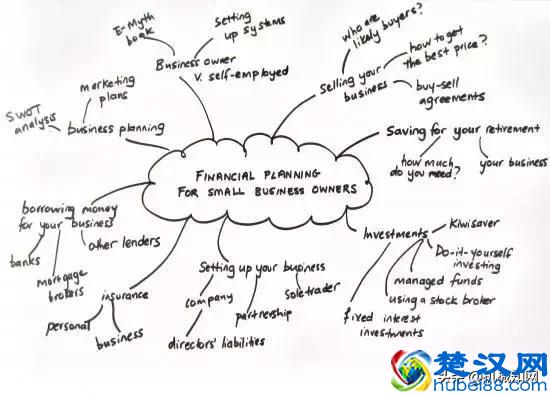 E-Myth
book
Setting
up systems
Business owner
v. self-employed
who are
likely buyers?
how to get
the best price?
Selling your
business
buy-sell
agreements
marketing
plans
SWOT
analysis
business planning
Saving for your retirement
how much
do you need?
your business
FINANCIAL PLANNING
FOR SMALL BUSINESS OWNERS
borrowing money
for your business
banks
mortgage
brokers
other lenders
insurance
personal
business
Setting up your business
company
partnership
sole trader
directors' liabilities
Investments
Kiwisaver
Do-it-yourself
investing
managed funds
using a stock broker
fixed interest
investments
楚汉网
hubei88.com